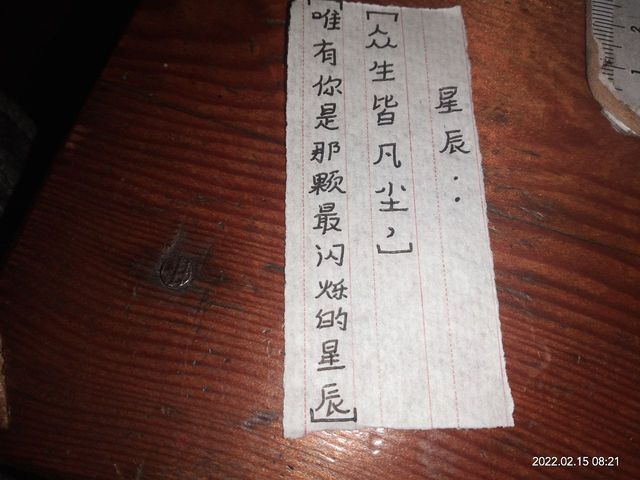 星辰：
[众生皆凡尘，]
[唯有你是那颗最闪烁的星辰]
2022.02.15 08:21